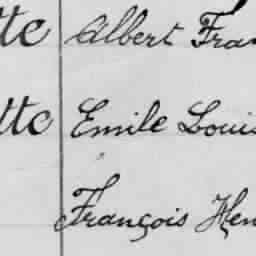 tte Albert Fran
tte Emile Louis
François Hen